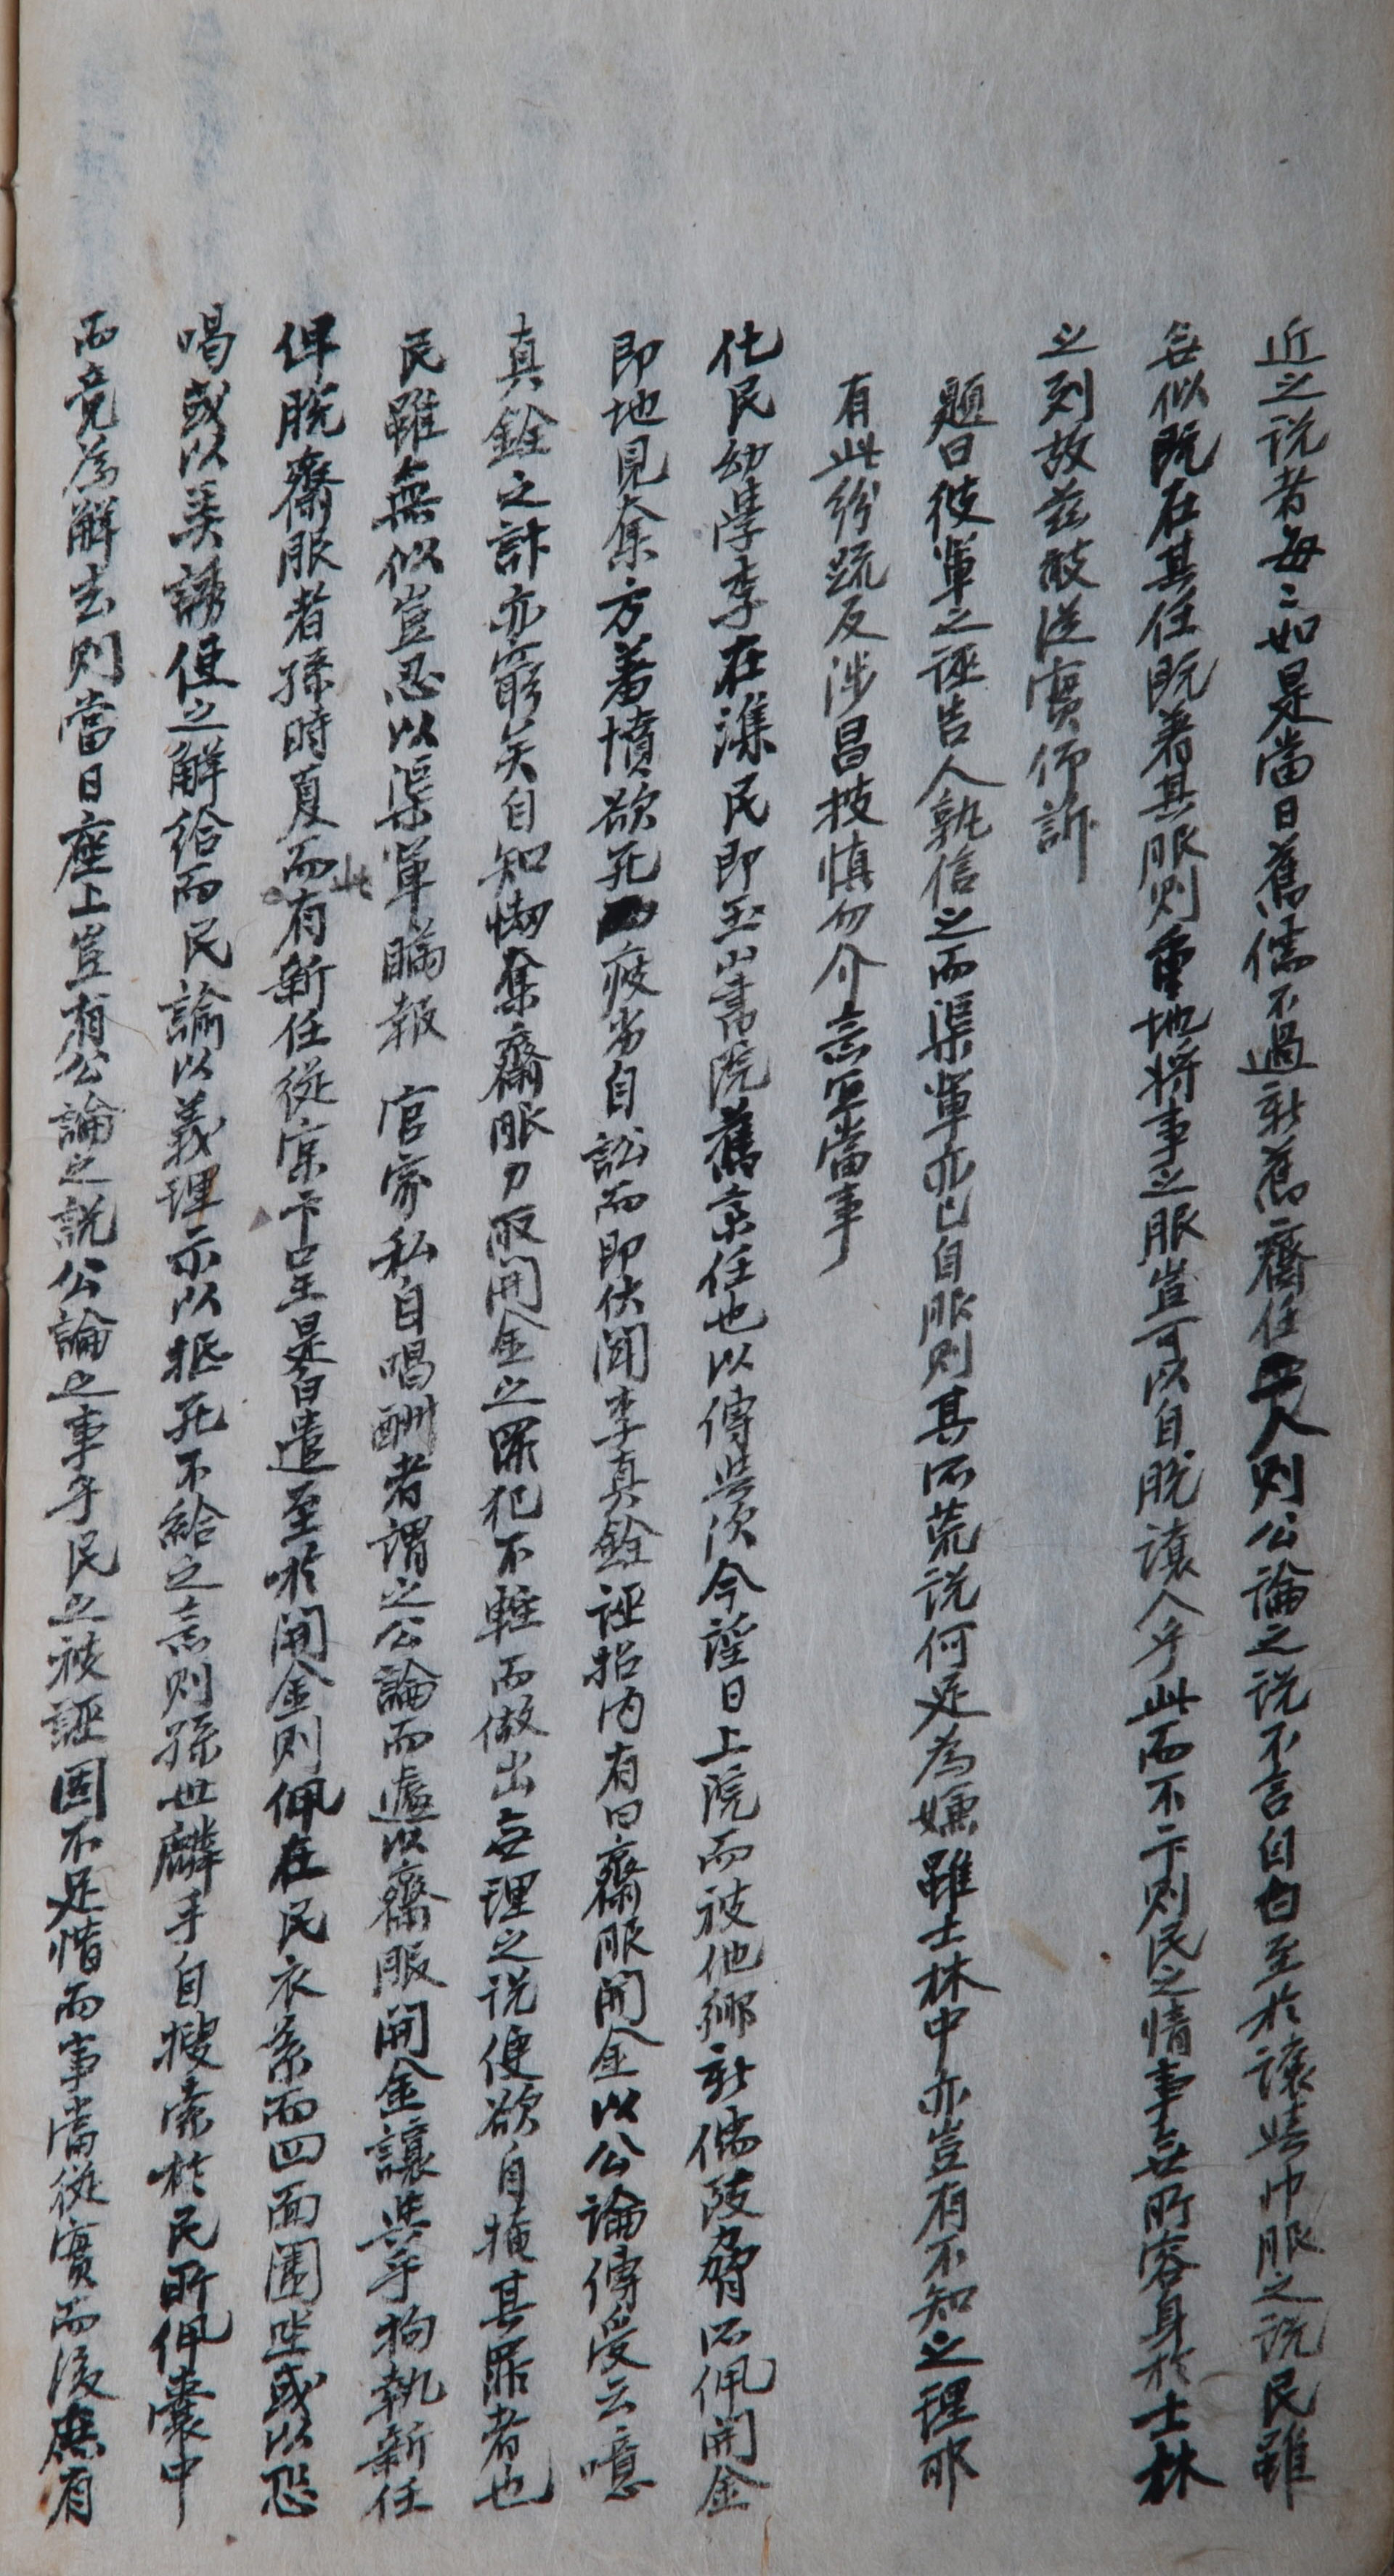 近之说者每〻如是當日舊儒不過新舊齋任四人则公論之说不言自白至於讓與巾服之説民雖
無似既在其任既著其服则重地将事之服豈可以自脱讓人乎此而不卞则民之情事無所容身於士林
之列故玆敢從實仰訴
題曰彼軰之誣告人孰信之而渠軰亦已自服则其所荒说何足為嫌雖士林中亦豈有不知之理耶
有此紛䟽反涉昌披慎勿介意宜當事
化民幼學李在潗民即玉山書院舊京任也以傳與次今望日上院而被他鄉新儒陵脅所佩開金
即地見奪方羞憤欲死疲劣自訟而即伏聞李真銓誣招内有曰齋服開金以公論傳受云噫
真銓之計亦窮矣自知刼奪齋服刀取開金之罪犯不輕而做出無理之说便欲自掩其罪者也
民雖無似豈忍以渠軰瞞報 官家私自唱酬者謂之公論而遽以齋服開金讓與乎拘執新任
俾脱齋服者孫時夏而此有新任從實卞呈是白遣至於開金则佩在民衣系而四面圍坐或以恐
喝或以美誘使之解給而民諭以義理示以抵死不給之意则孫世麟手自搜索於民所佩囊中
而竟為解去则當日座上豈有公論之説公論之事乎民之被誣固不足惜而事當從實而後應有